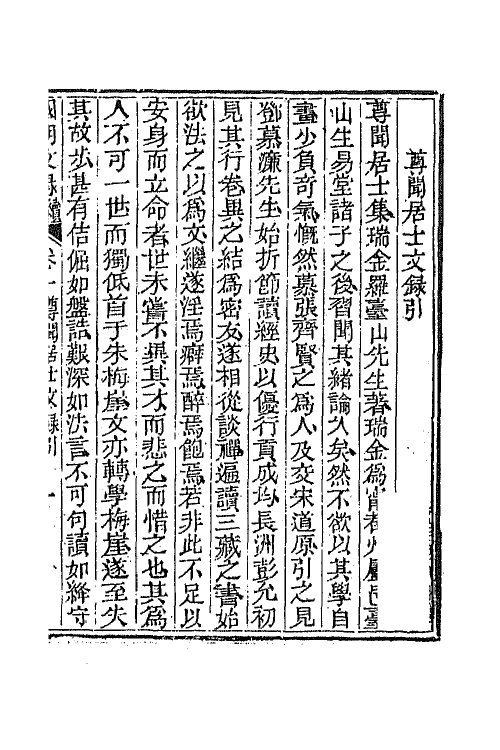 尊聞居士文錄引
尊聞居士集瑞金羅臺山先生著瑞金為甯都州屬邑臺
山生易堂諸子之後習聞其緒論久矣然不欲以其學自
畫少負奇氣慨然慕張齊賢之為人及交宋道原引之見
鄧慕濂先生始折節讀經史以優行貢成均長洲彭允初
見其行卷異之結為密友遂相從談禪遍讀三藏之書始
欲法之以為文繼遂淫焉癖焉醉焉飽焉若非此不足以
安身而立命者世未嘗不異其才而悲之而惜之也其為
人不可一世而獨低首于朱梅崖文亦轉學梅崖遂至失
其故步甚有佶倔如盤誥艱深如法言不可句讀如絳守
國朝文錄續 卷一尊聞居士文錄引 一